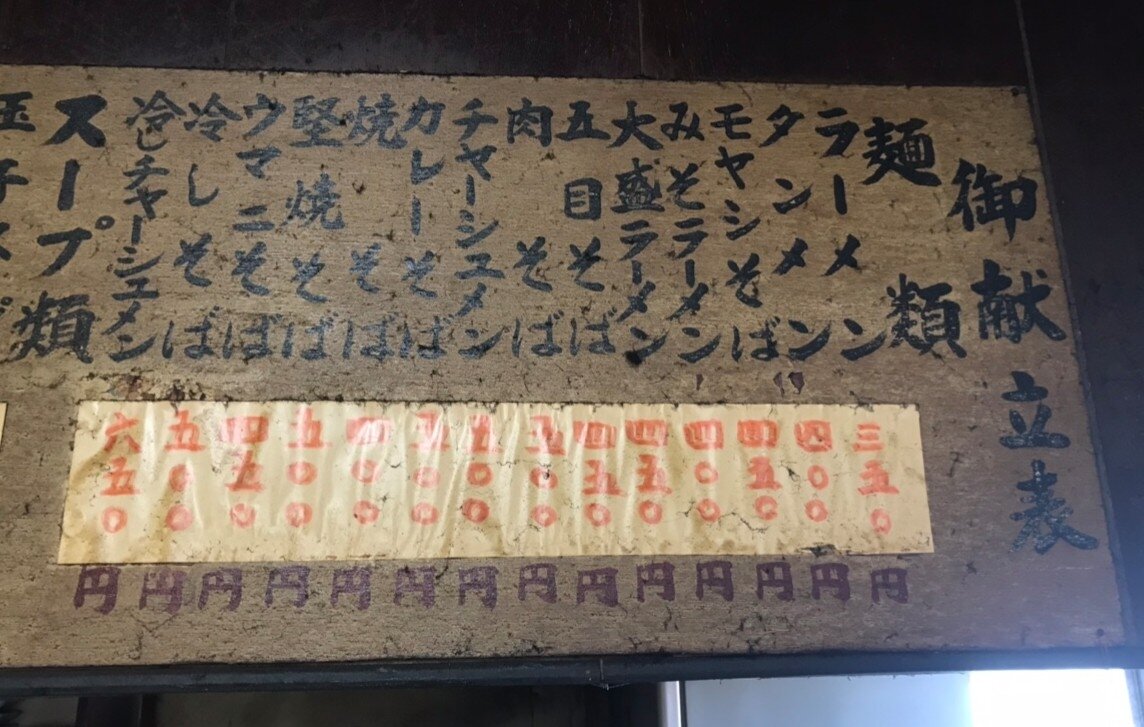 御献立表
麺類
ラーメン 三五〇円
タンメン 四〇〇円
モヤシそば 四五〇円
みそラーメン 四〇〇円
大盛ラーメン 四五〇円
五目そば 四五〇円
肉そば 五〇〇円
チャーシュメン 五〇〇円
カレーそば 五〇〇円
焼そば 四〇〇円
堅焼そば 五〇〇円
ウマニそば 四五〇円
冷しそば 五〇〇円
冷しチャーシュメン 六五〇円
スープ類